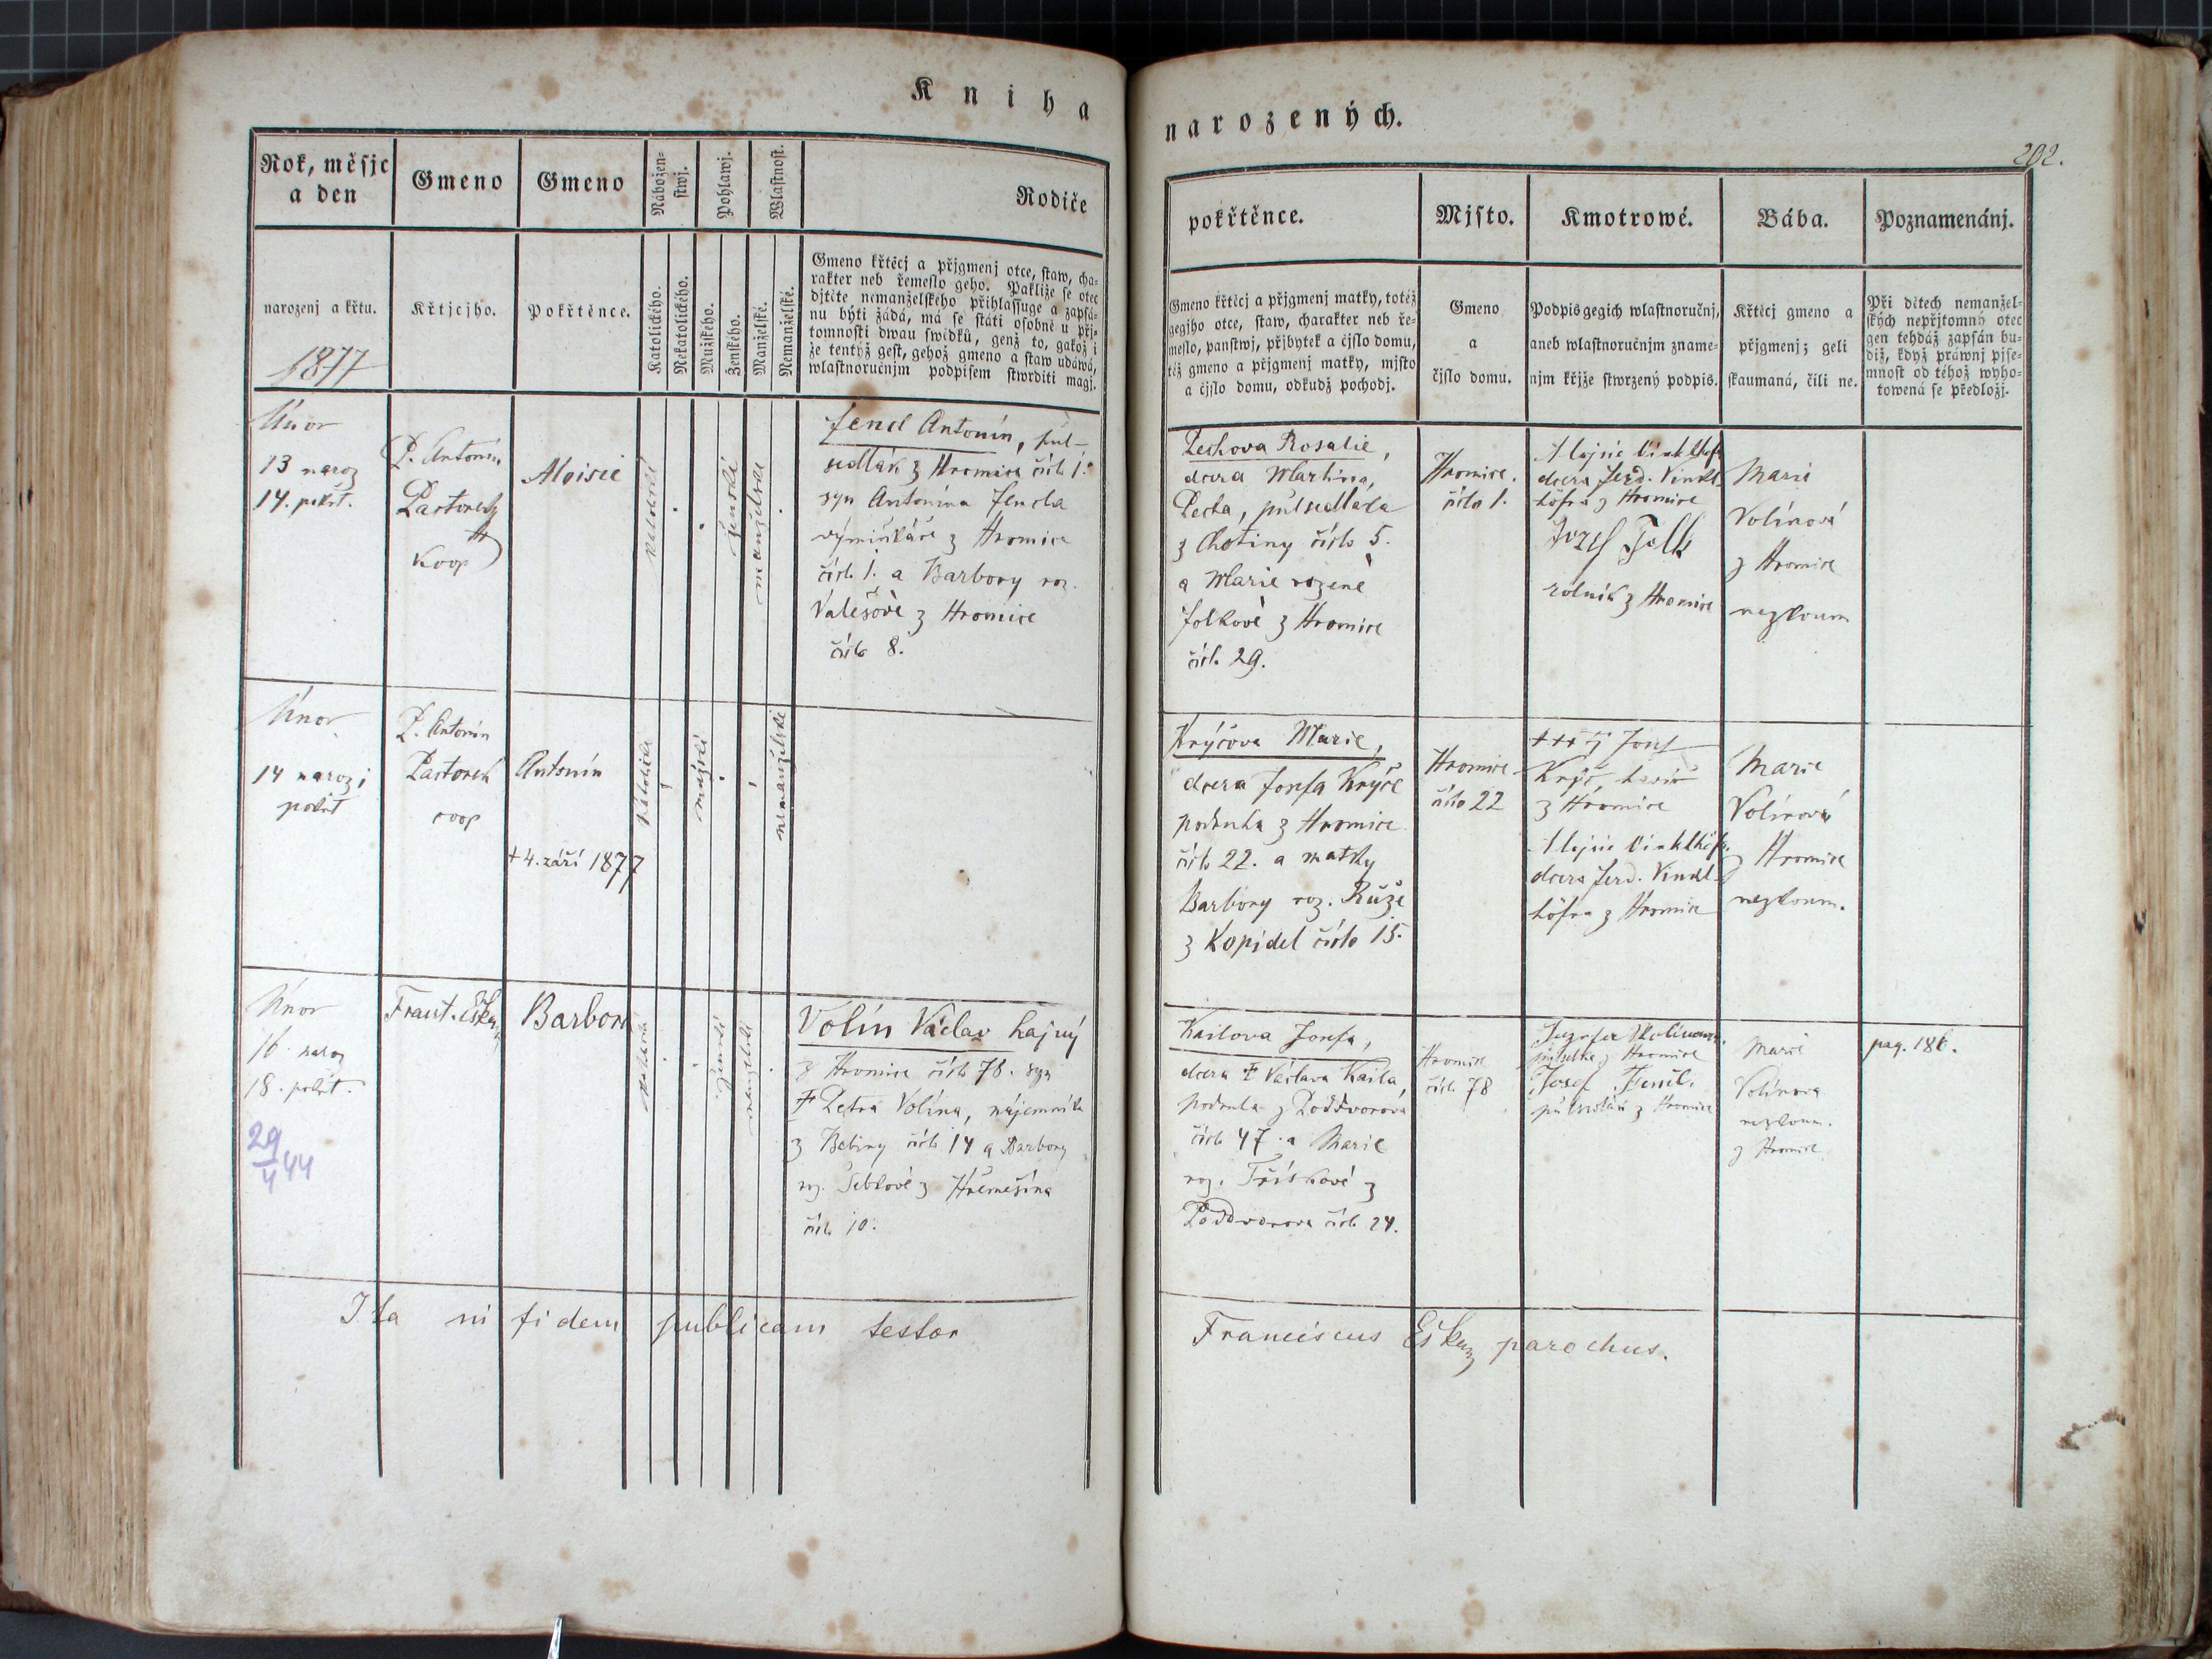 Kniha
narozených.
202.
Rok, měsjc
a den
Gmeno
Gmeno
Nábožen-
stwj.
Pohlawj.
Wlastnost.
Rodiče
pokřtěnce.
Mjsto.
Kmotrowé.
Bába.
Poznamenánj.
narozenj a křtu.
1877
Křtjcjho.
Pokřtěnce.
Katolického.
Nekatolického.
Mužského.
Ženského.
Manželské.
Nemanželské.
Gmeno křtěcj a přjgmenj otce, staw, cha-
rakter neb řemeslo geho. Pakliže se otec
djtěte nemanželského přihlassuge a zapsá-
nu býti žádá, má se státi osobně u přj-
tomnosti dwau swědků, genž to, gakož i
že tentýž gest, gehož gmeno a staw udáwá,
wlastnoručnjm podpisem stwrditi magj.
Gmeno křtěcj a přjgmenj matky, totéž
gegjho otce, staw, charakter neb ře-
meslo, panstwj, přjbytek a čjslo domu,
též gmeno a přjgmenj matky, mjsto
a čjslo domu, odkudž pochodj.
Gmeno
a
čjslo domu.
Podpis gegich wlastnoručnj,
aneb wlastnoručnjm zname-
njm křjže stwrzený podpis.
Křtěcj gmeno a
přjgmenj; geli
skaumaná, čili ne.
Při dětech nemanžel-
ských nepřjtomný otec
gen tehdáž zapsán bu-
diž, když práwnj pjse-
mnost od téhož wyho-
towená se předložj.
Únor
13 naroz
14. pokřt.
P. Antonín
Pastorek
Koop
Aloisie
katolické
ženské
manželské
Fencl Antonín, půl-
sedlák z Hromice čísl. 1.
syn Antonína Fencla
výminkáře z Hromice
čísl. 1. a Barbory roz.
Valešové z Hromice
číslo 8.
Pechova Rosalie,
dcera Martina
Pecha, půlsedláka
z Chotiny číslo 5.
a Marie rozené
Folkové z Hromice
čísl. 29.
Hromice.
číslo 1.
dcera Ferd. Vinkl-
höfra z Hromice
Jozef Folk
rolník z Hromice
Marie
Volínová
z Hromice
nezkoum
Únor
14 naroz i
pokřt
P. Antonín
Pastorek
coop
Antonín
+ 4. září 1877
katolické
mužské
nemanželské
Krýčova Marie,
dcera Josefa Krýče
podruha z Hromice
číslo 22. a matky
Barbory roz. Růže
z Kopidel číslo 15.
Hromice
číslo 22
+++ Josef
Krýč
z Hromice
dcera Ferd. Vinkl-
höfra z Hromice
Marie
Volínová
z Hromice
nezkoum.
Únor
16 naroz
18. pokřt.
29
4 44
Frant.
Barbora
katolické
ženské
manželské
Volín Václav hajný
z Hromice číslo 78. syn
† Petra Volína, nájemníka
z Bebiny číslo 14 a Barbory
roz. z
číslo 10.
Kailova Josefa,
dcera † Václava Kaila,
podruha z Poddvorova
čísl. 47. a Marie
roz. Tříškové z
Poddvorova čísl. 24.
Hromice
čísl. 78
z Hromice
Josef Fencl.
půlsedlák z Hromice
Marie
Volínova
nezkoum.
z Hromice
pag. 186.
Ita in fidem publicam testor
Franciscus parochus.